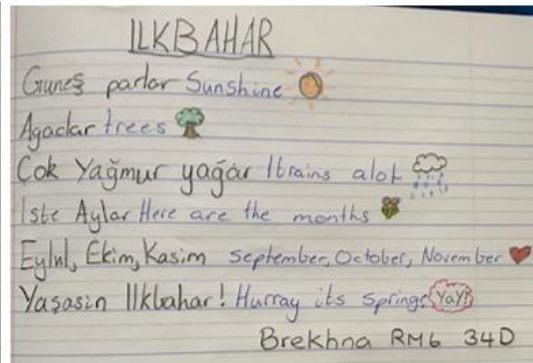 ILKBAHAR
Guneş parlar Sunshine
Agaclar trees
Çok Yağmur yağar It rains alot
Iste Aylar Here are the months
Eylul, Ekim, Kasim September, October, November
Yaşasin Ilkbahar! Hurray its spring! Yay!
Brekhna RM6 34D